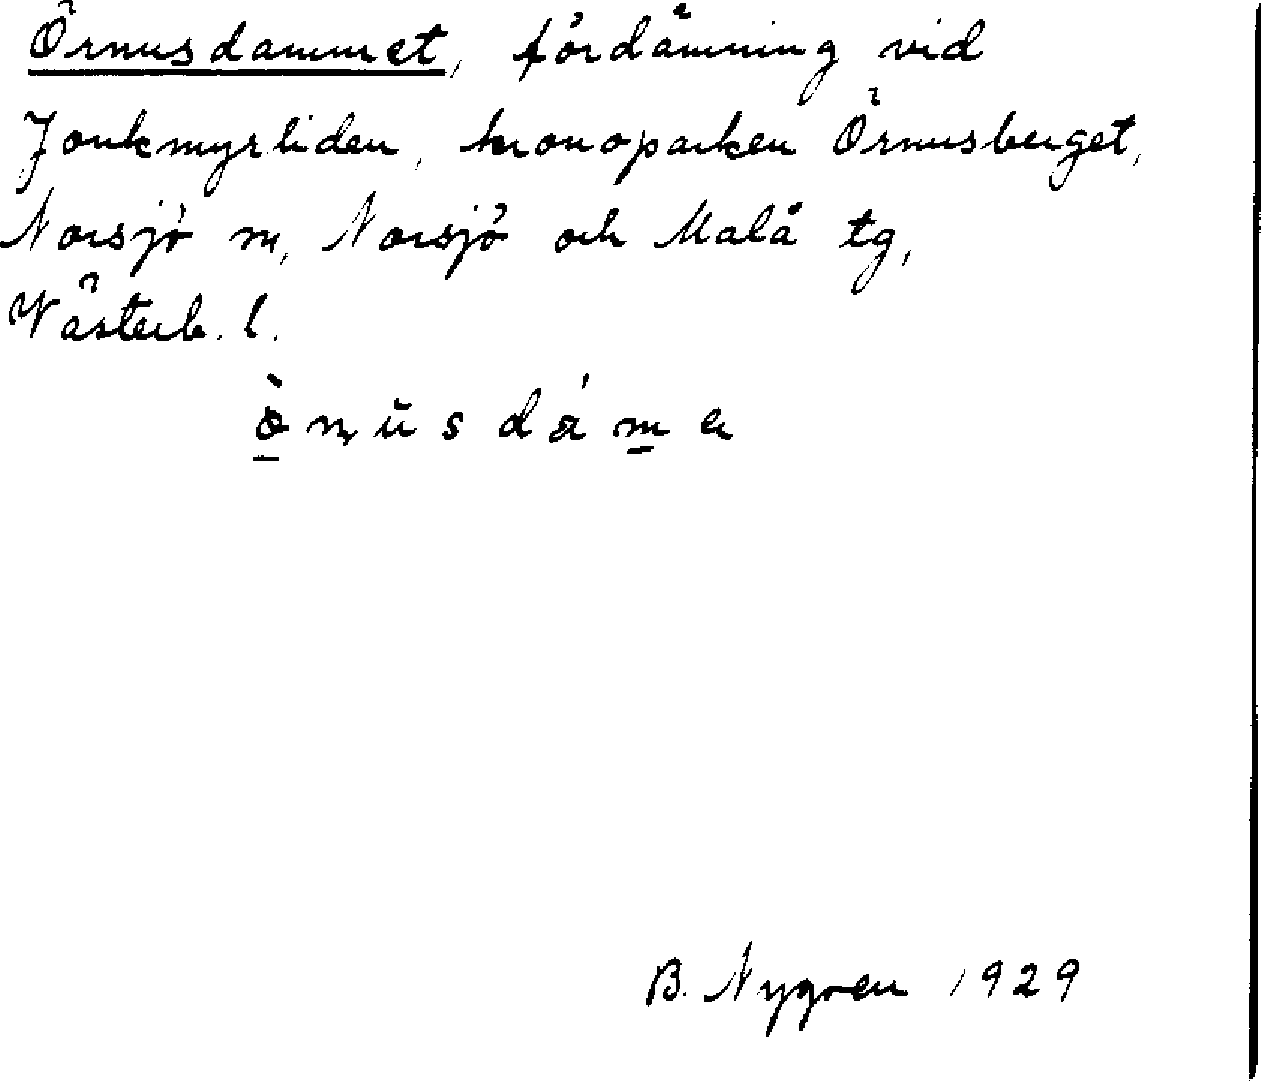 Örnusdammet, fördämning vid
Jonkmyrliden, kronoparken Örnusberget,
Norsjö m, Norsjö och Malå tg,
Västerb. l.
B. Nygren 1929